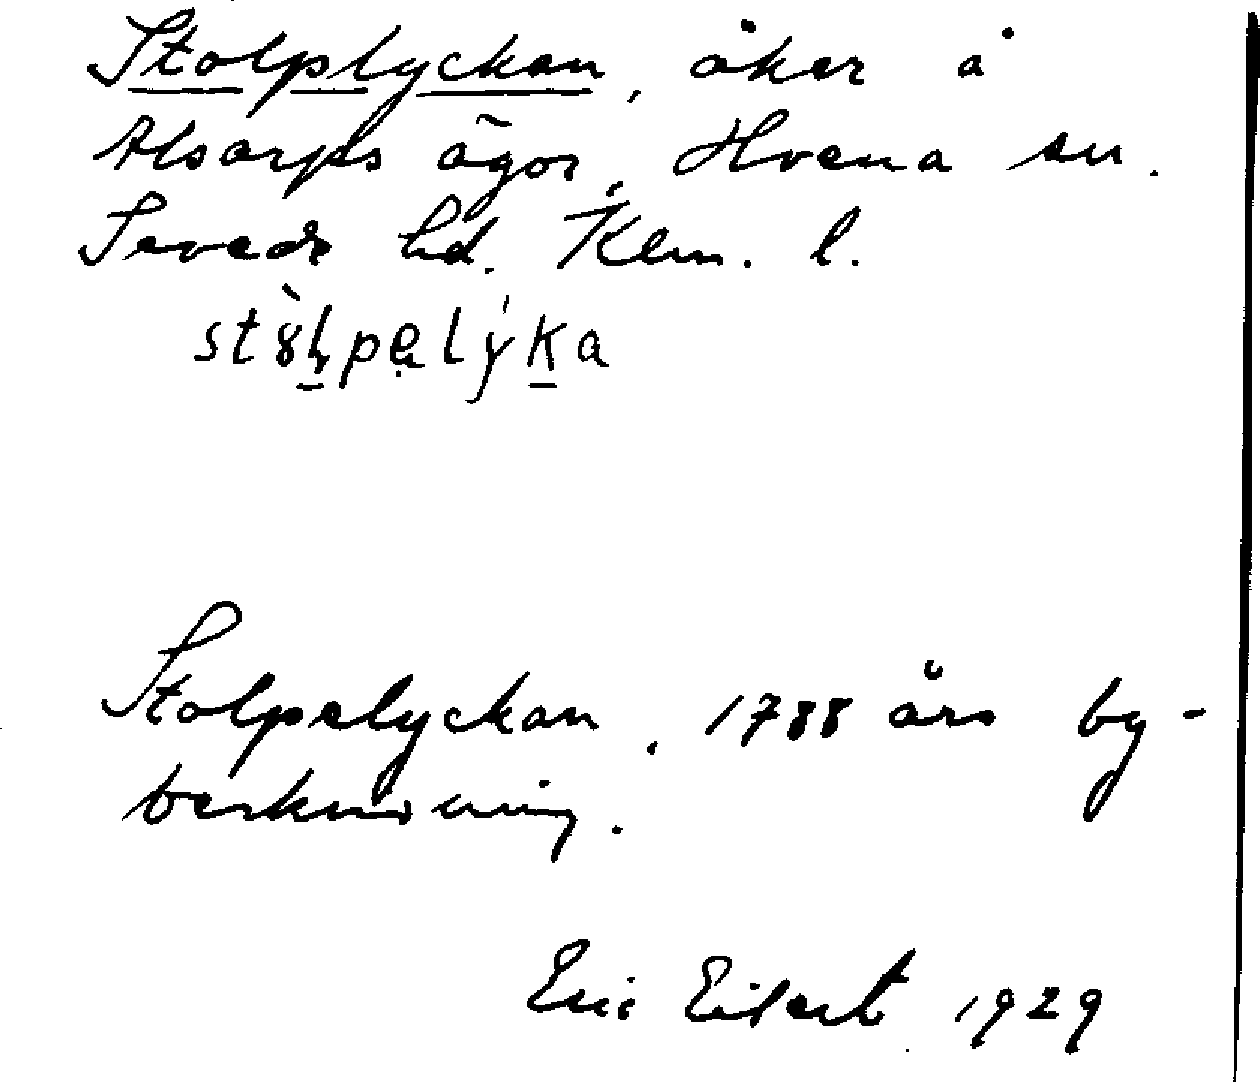 Stolplyckan, åker å
Alsarps ägor, Hvena sn.
Sevede hd. Klm. l.
Stolpelyckan, 1788 års by-
beskrivning.
Eric Eilert 1929